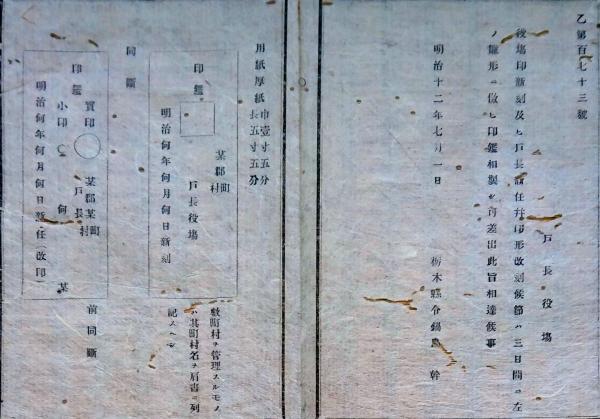 乙第百七十三號
戸長役場
役場印新刻及ヒ戸長新任幷印形改刻候節ハ三日間ニ左
ノ雛形ニ倣ヒ印鑑相製シ可差出此旨相達候事
明治十二年七月一日
栃木縣令鍋島幹
用紙厚紙 巾壹寸五分 長五寸五分
印鑑
某郡 町村
戸長役場
明治何年何月何日新刻
數町村ヲ管理スルモノ
ハ其町村名ヲ肩書ニ列
記スヘシ
同斷
印鑑
實印
小印
某郡某町村
戸長
何某
明治何年何月何日新任(改印)
前同斷